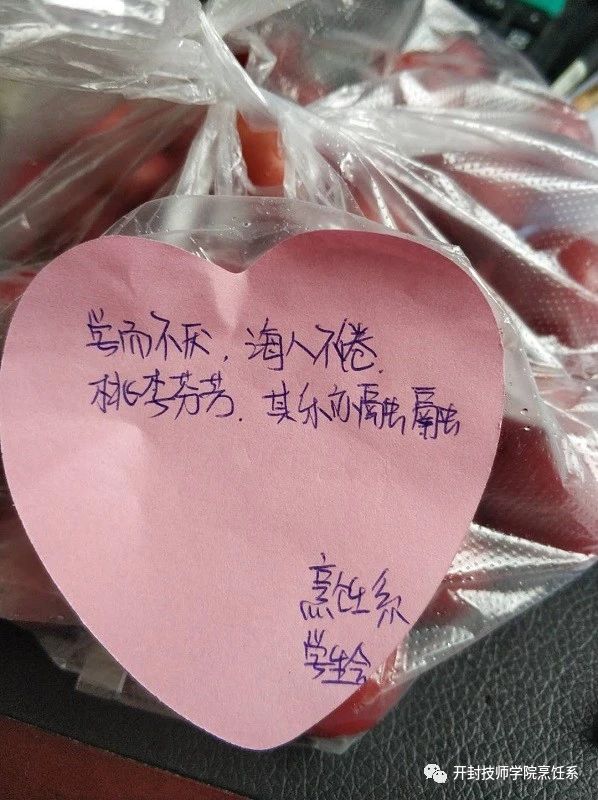 学而不厌，诲人不倦.
桃李芬芳.其乐亦融融
烹饪系
学生会
开封技师学院烹饪系